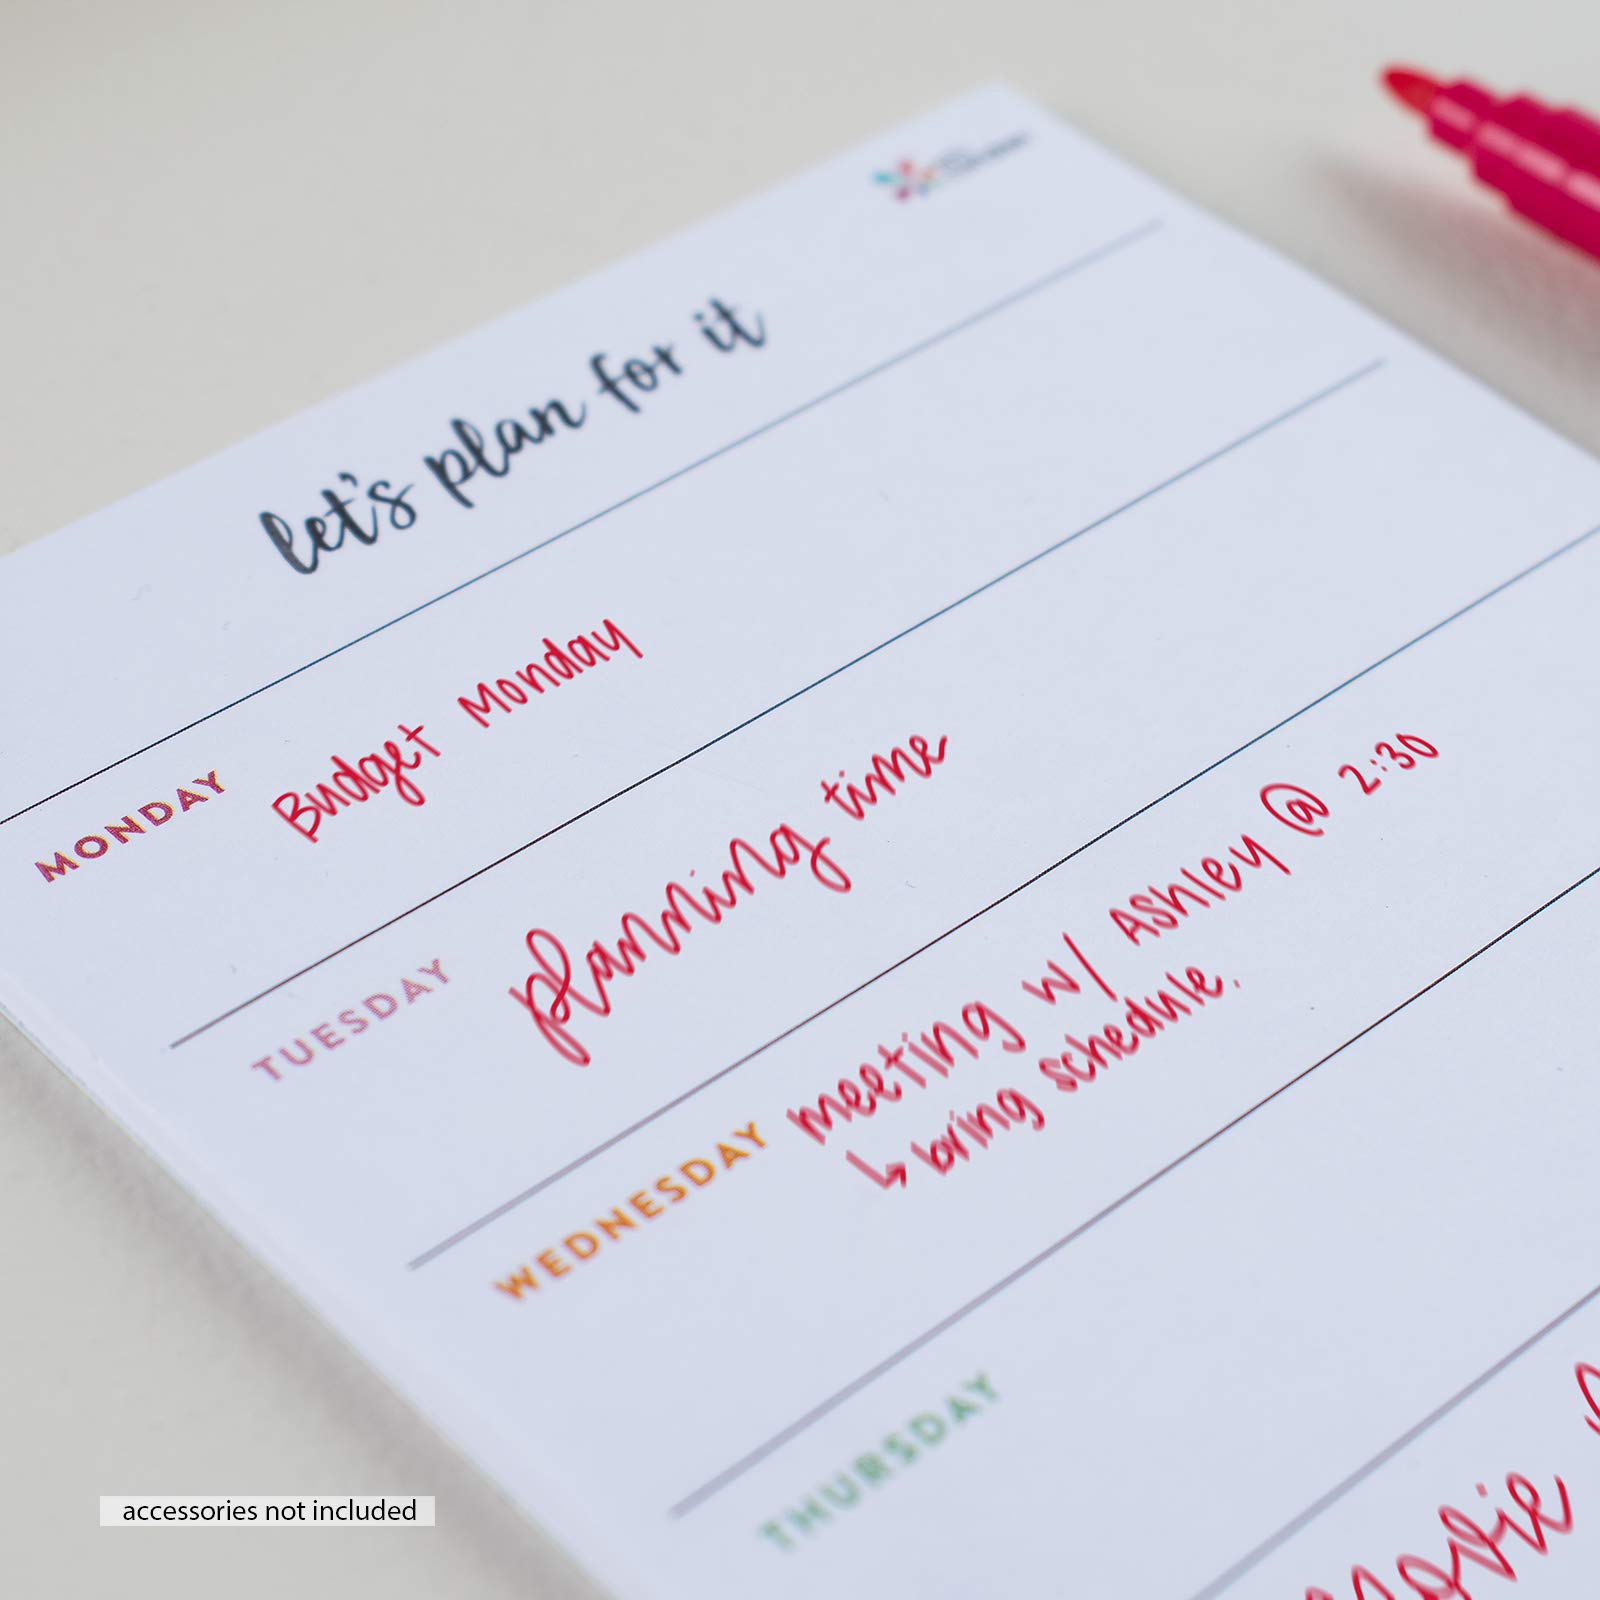 let's plan for it
MONDAY Budget Monday
TUESDAY planning time
WEDNESDAY meeting w/ Ashley @ 2:30
↳ bring schedule.
THURSDAY
movie
accessories not included